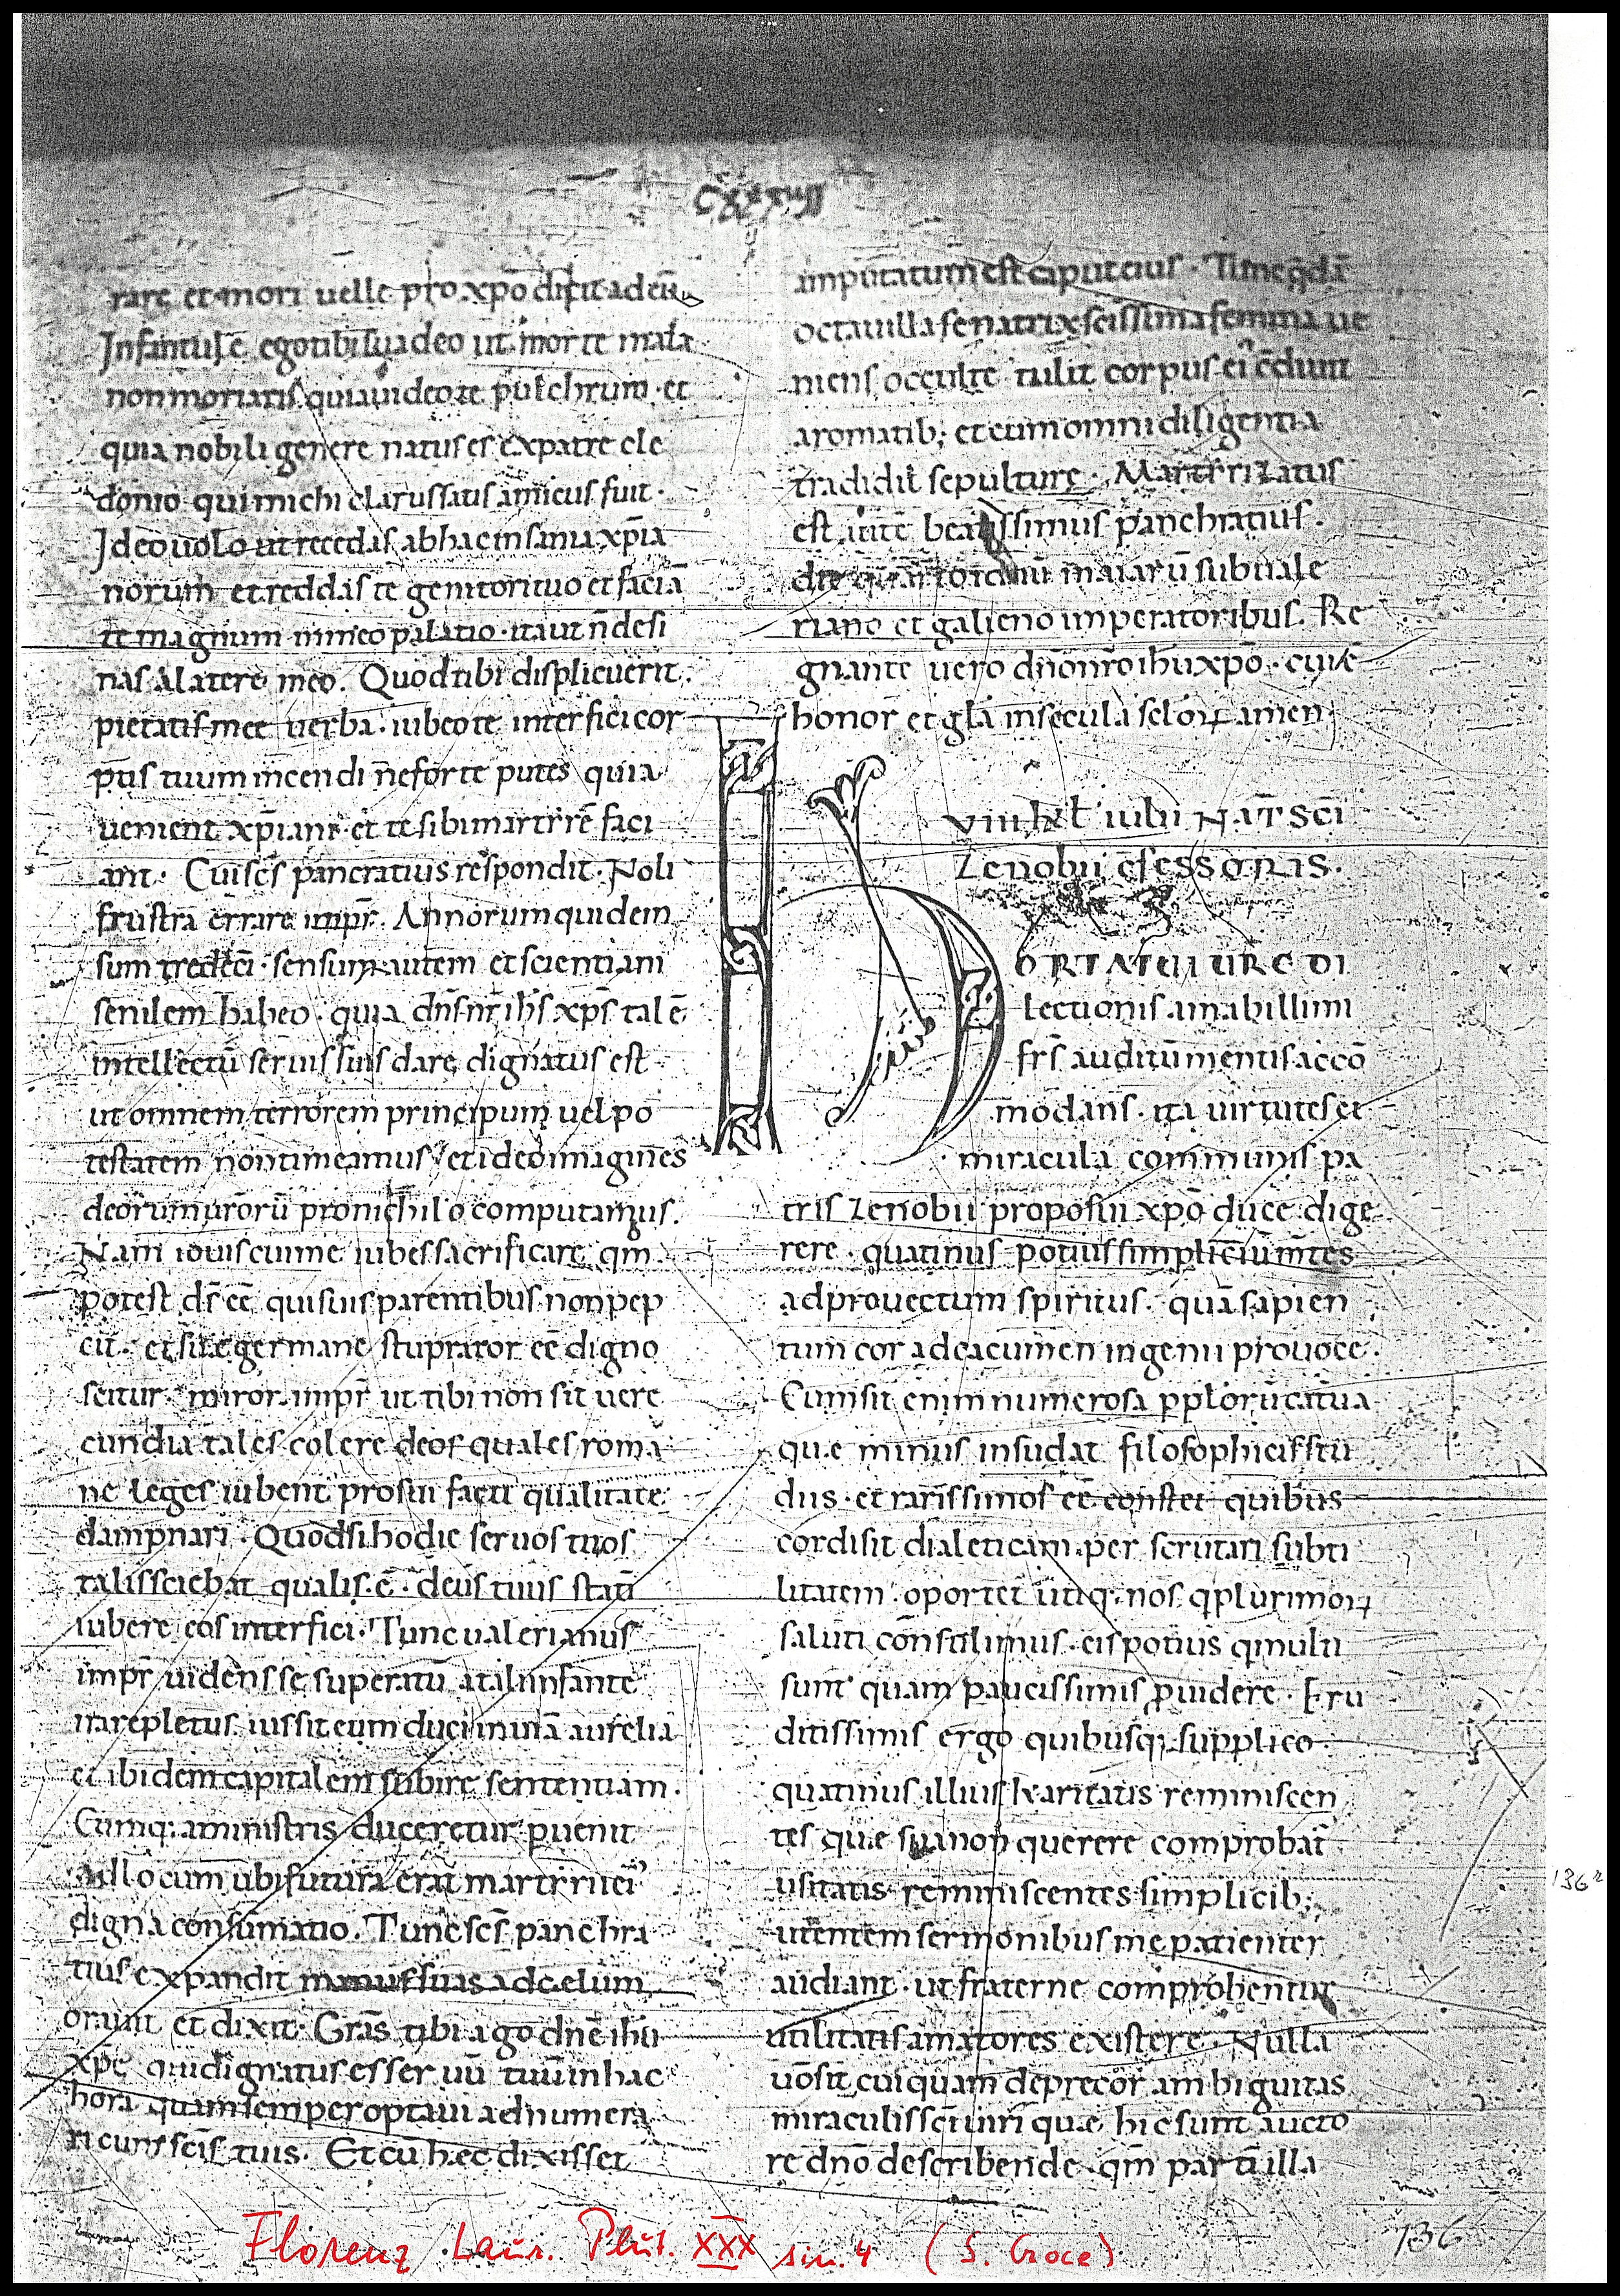 CXXXVII
rare et mori uelle pro xpō dixit ad eū
Infantule ego tibi suadeo ut morte mala
non moriaris quia uideo te pulchrum · et
quia nobili genere natus es ex patre cle
donio qui michi clarus satis amicus fuit ·
Ideo uolo ut recedas ab hac insania xp̄ia
norum et reddas te genitori tuo et faciā
te magnum in meo palatio · ita ut n̄ desi
nas a latere meo. Quod tibi displicuerit
pietatis mee uerba · iubeo te interfici cor
pus tuum incendi ne forte putes quia
uenient xp̄iani · et te sibi martirē faci
ant · Cui scs̄ pancratius respondit · Noli
frustra errare impr̄. Annorum quidem
sum tredeci · sensum autem et scientiam
senilem habeo · quia dn̄s nr̄ ih̄s xp̄s talē
intellectū seruis suis dare dignatus est
ut omnem terrorem principum uel po
testatem non timeamus · et ideo imagines
deorum uroru pro nichilo computamus.
Nam iouis cui me iubes sacrificare qm̄
potest ds̄ eē qui suis parentibus non pep
cit · et sue germane stuprator eē digno
scitur · miror impr̄ ut tibi non sit uere
cundia tales colere deos quales roma
ne leges iubent pro sui facti qualitate
dampnari · Quod si hodie seruos tuos
talis sciebat qualis · ē · deus tuus statī
iubere eos interfici · Tunc ualerianus
impr̄ uidens se superatū a tali infante
ira repletus iussit eum duci in uiā aurelia
et ibidem capitalem subire sententiam ·
Cumq; a ministris duceretur puenit
ad locum ubi futura erat martirii ei'
digna consumatio. Tunc scs̄ panchra
tius expandit manus suas ad celum
orauit et dixit · Gras̄ tibi ago dnē ihū
xp̄e qui dignatus es seruū tuū in hac
hora quam semper optaui adnumera
ri cum scīs tuis. Et cū hec dixisset
amputatum est caput eius · Tunc qdā
octauilla senatrix scissima femina ue
niens occulte tulit corpus ei' cōdiuit
aromatib; et cum omni diligentia
tradidit sepulture · Martirizatus
est beatissimus panchratius ·
die maiarū sub uale
riano et galieno imperatoribus. Re
gnante uero dn̄o nr̄o ihū xpō · cui ē
honor et gla in secula scloꝝ amen ·
VIII kl iulii NAT SCI
Zenobii cfessoris.
HORTATUI URE DI
lectionis amabillimi
frs̄ auditū mentis acco
modans · ita uirtutes et
miracula communis pa
tris Zenobii proposui xpō duce dige
rere · quatinus potius simpliciū mtes
ad prouectum spiritus · quā sapien
tum cor ad eacumen ingenii prouoce ·
Cum sit enim numerosa pplorū catua
que minus insudat filosophicis stu
diis · et rarissimos eē constet quibus
cordi sit dialeticam per scrutari subti
litatem · oportet utiq; nos q plurimoꝝ
saluti consulimus · eis potius q multi
sunt quam paucissimis puidere · Eru
ditissimis ergo quibusq; supplico
quatinus illius karitatis reminiscen
tes que sua non querere comprobat
usitatis reminiscentes simplicib;
utentem sermonibus me patienter
audiant · ut fraterne comprobentur
utilitatis amatores existere · Nulla
uo sit cuiquam deprecor ambiguitas
miraculis sc̄i uiri que hic sunt aucto
re dnō describende · qm̄ partī illa
136r
136
Florenz Laur. Plut. XXX sin. 4 (S. Croce)